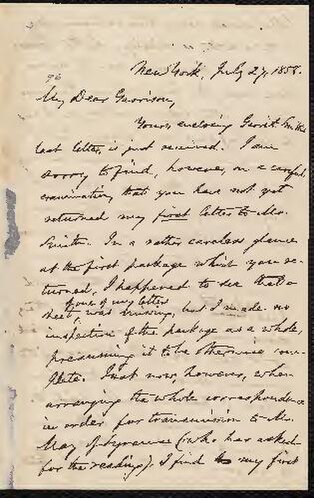 New York, July 27, 1858.
My Dear Garrison,
Yours, enclosing Gerrit Smith's
last letter, is just received. I am
sorry to find, however, on a careful
examination, that you have not yet
returned my first letter to Mr.
Smith. In a rather careless glance
at the first package which you re-
turned, I happened to see that a
of one of my letters
sheet, was missing, but I made no
inspection of the package as a whole,
presuming it to be otherwise com-
plete. Just now, however, when
arranging the whole correspondence
in order for transmission to Mr.
May of Syracuse (who has asked
for the reading), I find my first